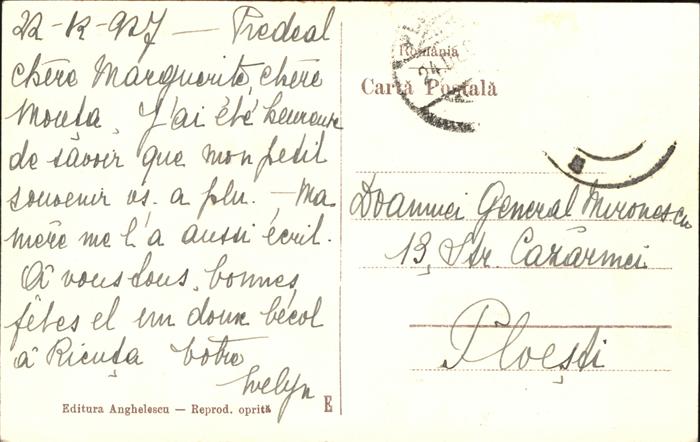 22-12-927 — Predeal
chère Marguerite, chère
Mouta. J'ai été heureuse
de savoir que mon petit
souvenir vs. a plu. — Ma
mère me l'a aussi écrit.
À vous tous, bonnes
fêtes et un doux bécot
à Ricuța Votre
Evelyn
Editura Anghelescu — Reprod. oprită
E
România
24 DEC
Carta Poștală
Doamnei General Mironescu
13, Str. Cazărmei
Ploești